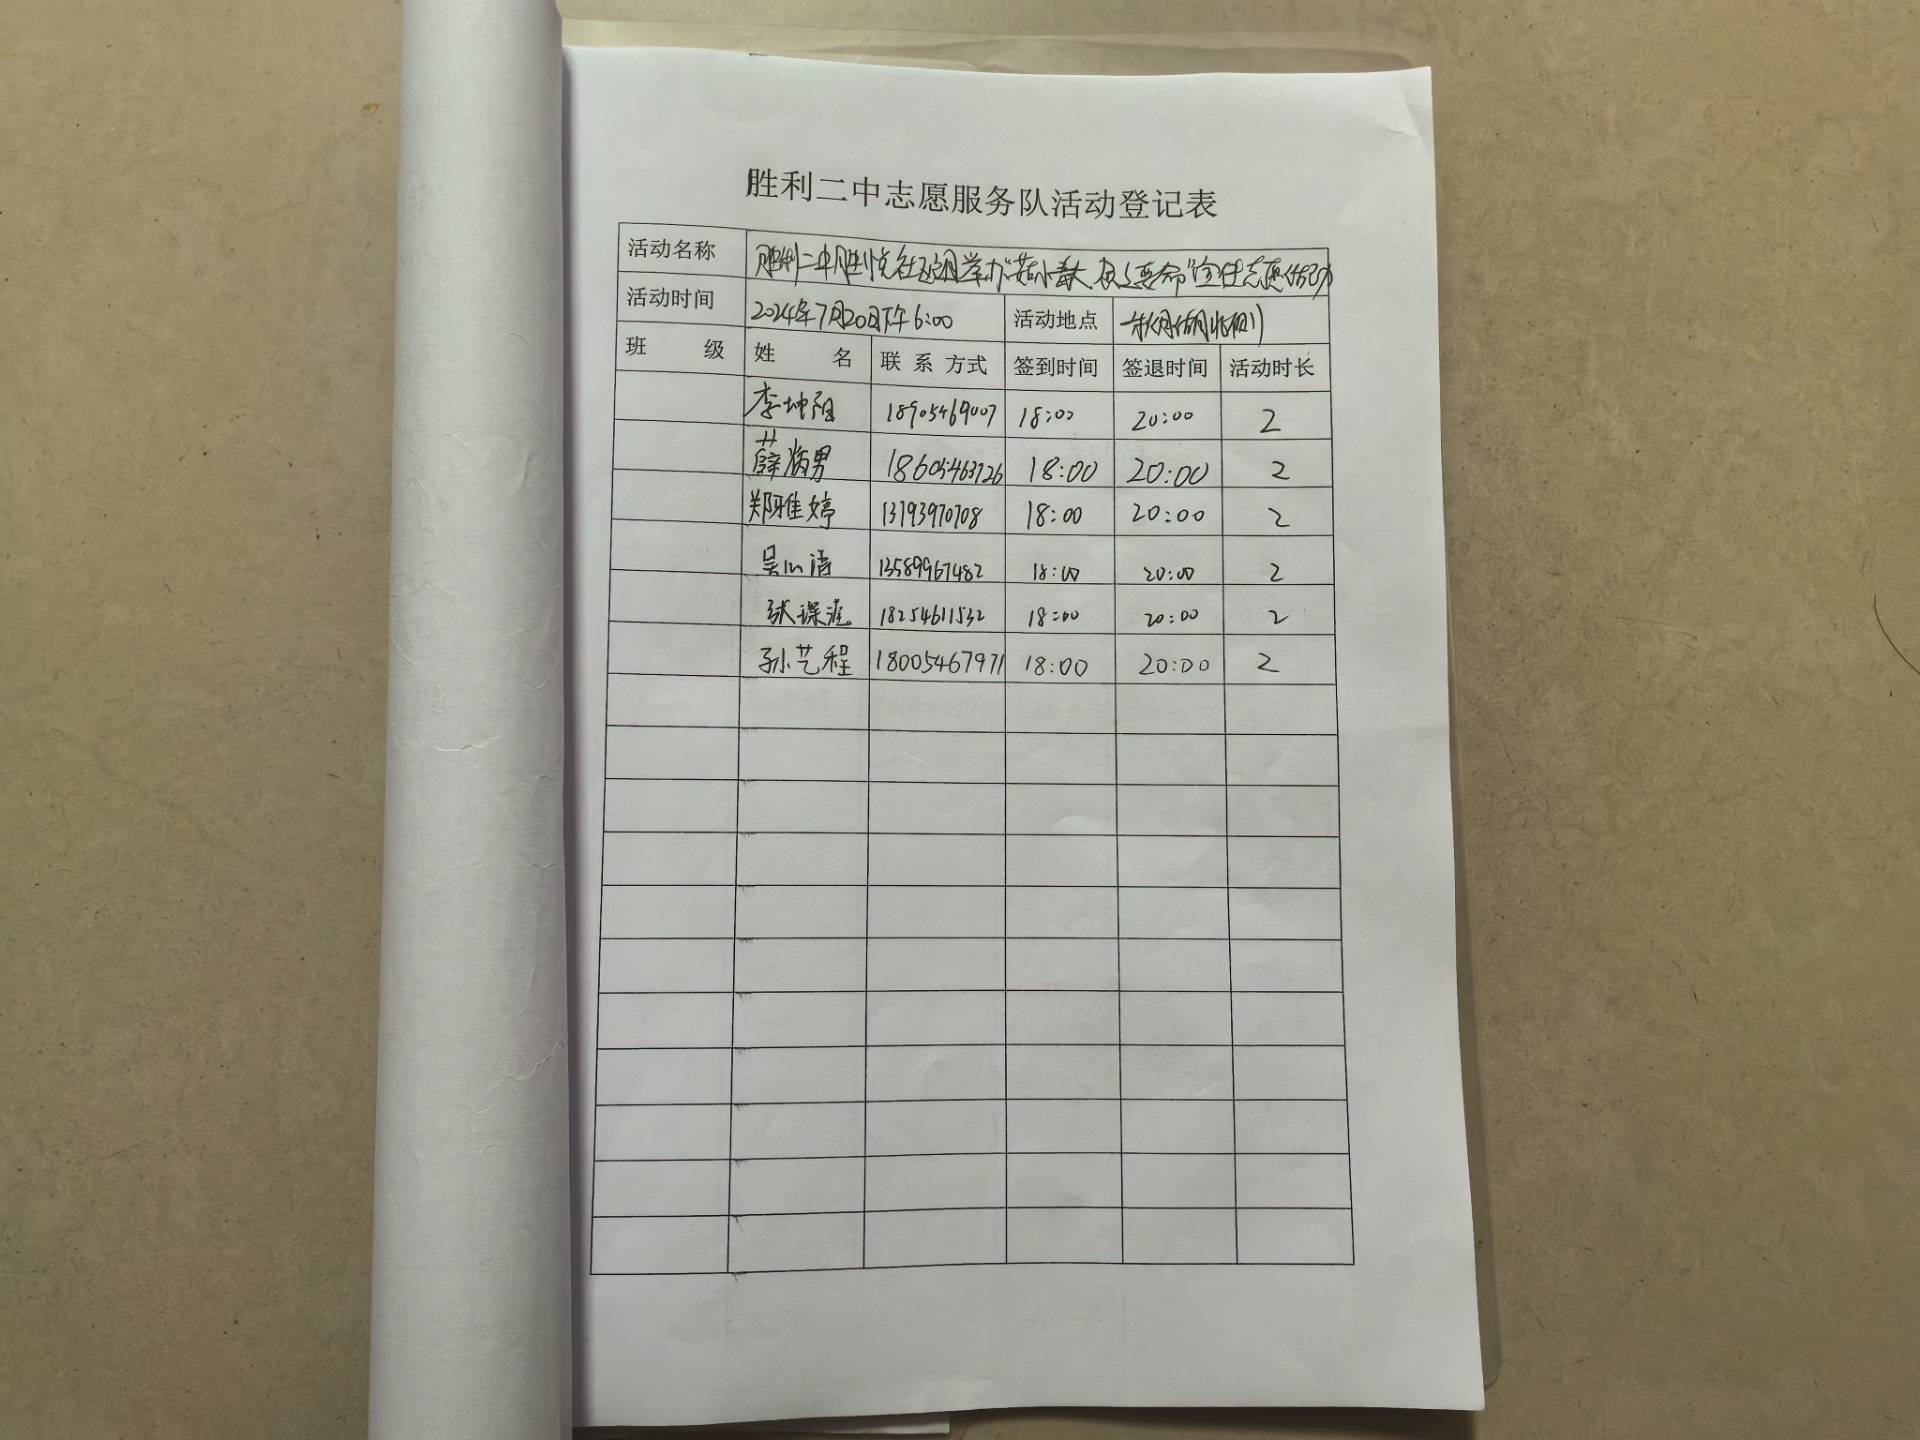 胜利二中志愿服务队活动登记表
活动名称 胜利二中胜悦社区举办"菇小毒大 误食要命"宣传志愿活动
活动时间 2024年7月20日下午6:00 活动地点
班 级 姓 名 联 系 方式 签到时间 签退时间 活动时长
李坤阳 18905469007 18:00 20:00 2
薛炳男 18605463726 18:00 20:00 2
郑雅婷 13793970708 18:00 20:00 2
吴心清 13589967482 18:00 20:00 2
张 18254611532 18:00 20:00 2
孙艺程 18005467971 18:00 20:00 2